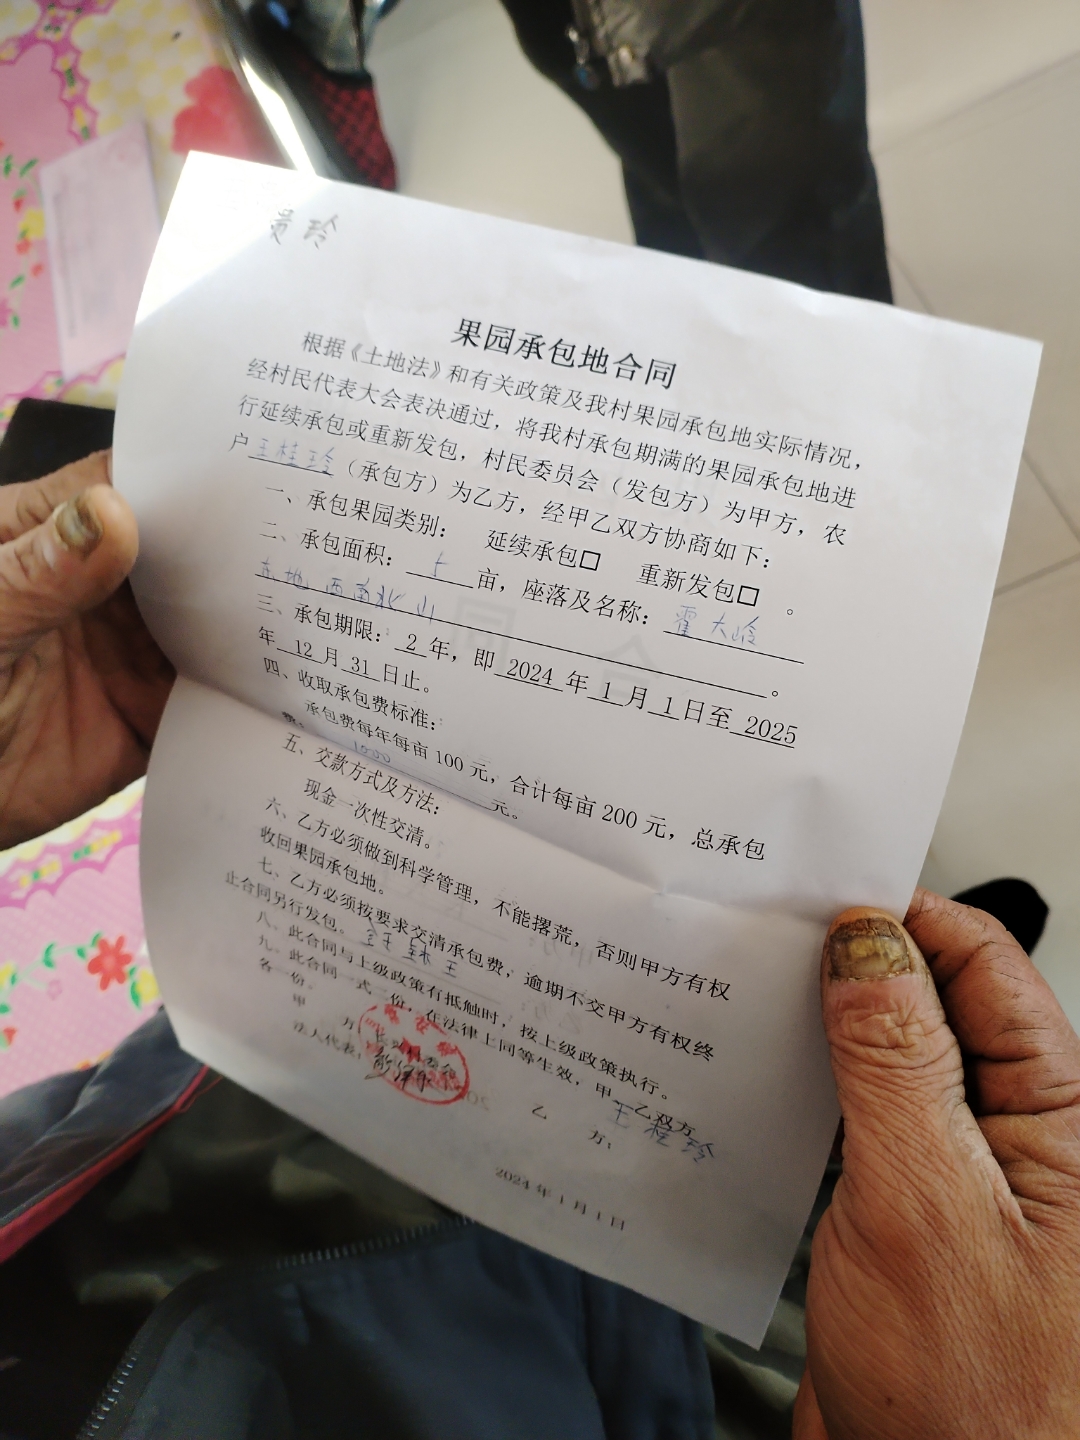 贵玲
果园承包地合同
根据《土地法》和有关政策及我村果园承包地实际情况，
经村民代表大会表决通过，将我村承包期满的果园承包地进
行延续承包或重新发包，村民委员会（发包方）为甲方，农
户王桂玲（承包方）为乙方，经甲乙双方协商如下：
一、承包果园类别： 延续承包□ 重新发包□ 。
二、承包面积： 5 亩，座落及名称：霍大岭
东地 西南北山 。
三、承包期限： 2 年，即 2024 年 1 月 1 日至 2025
年 12 月 31 日止。
四、收取承包费标准：
承包费每年每亩 100 元，合计每亩 200 元，总承包
费： 1000 元。
五、交款方式及方法：
现金一次性交清。
六、乙方必须做到科学管理，不能撂荒，否则甲方有权
收回果园承包地。
七、乙方必须按要求交清承包费，逾期不交甲方有权终
止合同另行发包。
八、此合同与上级政策有抵触时，按上级政策执行。
九、此合同一式二份，在法律上同等生效，甲、乙双方
各一份。
甲 方：
法人代表：
乙 方： 王桂玲
2024 年 1 月 1 日